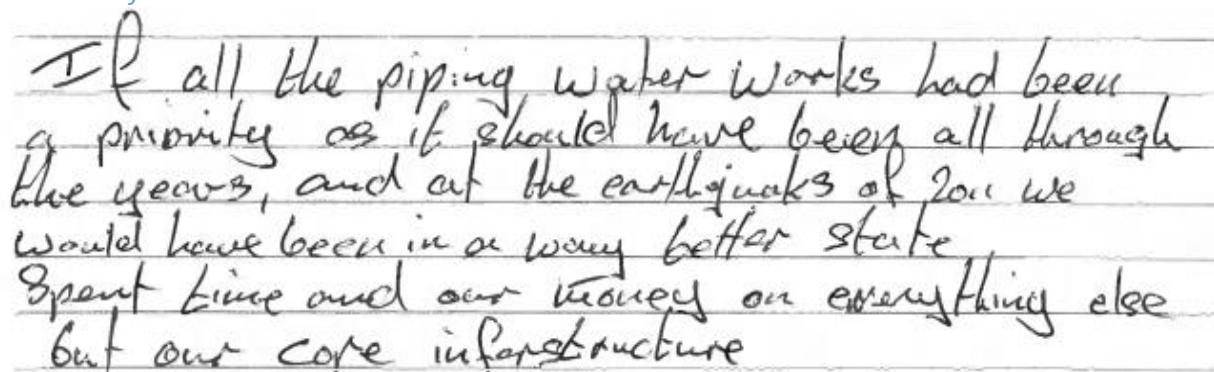 If all the piping water works had been
a priority as it should have been all through
the years, and at the earthquaks of 2011 we
would have been in a way better state
Spent time and our money on everything else
but our core inferstructure